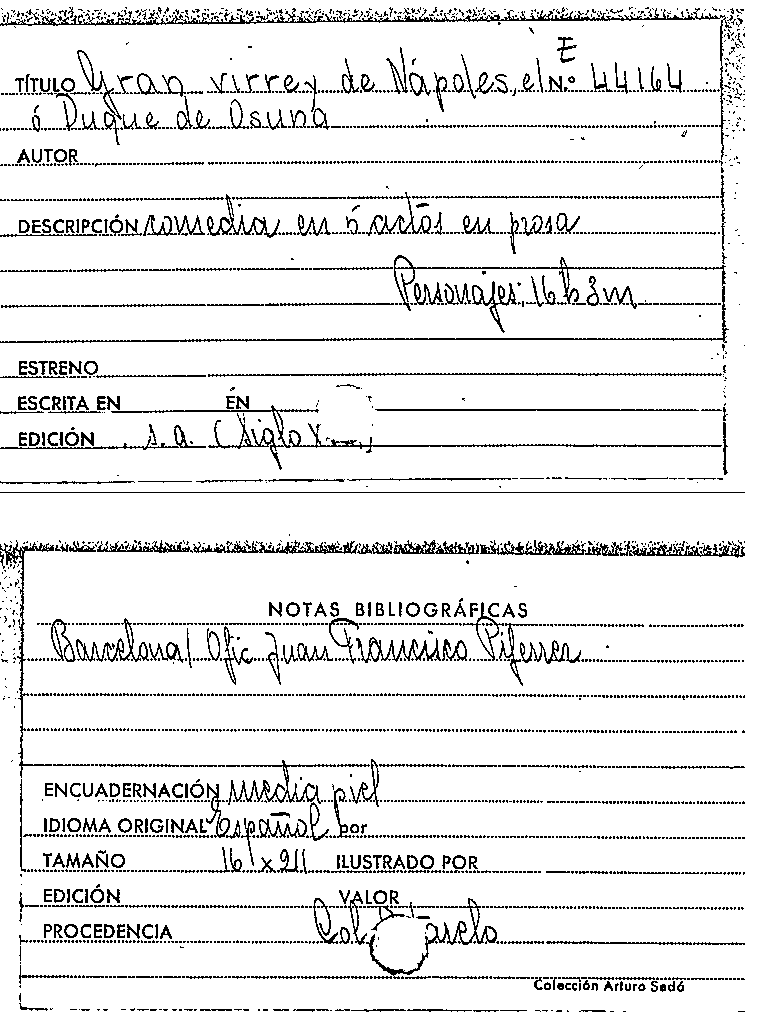 E
TÍTULO Gran virrey de Nápoles, el N.º 44164
ó Duque de Osuna
AUTOR
DESCRIPCIÓN comedia en 5 actos en prosa
Personajes, 16 h 3 m
ESTRENO
ESCRITA EN EN
EDICIÓN s.a. (Siglo X
NOTAS BIBLIOGRÁFICAS
Barcelona/ Ofic Juan Francisco Piferrer
ENCUADERNACIÓN media piel
IDIOMA ORIGINAL Español por
TAMAÑO ILUSTRADO POR
EDICIÓN VALOR
PROCEDENCIA Col
Colección Arturo Sedó